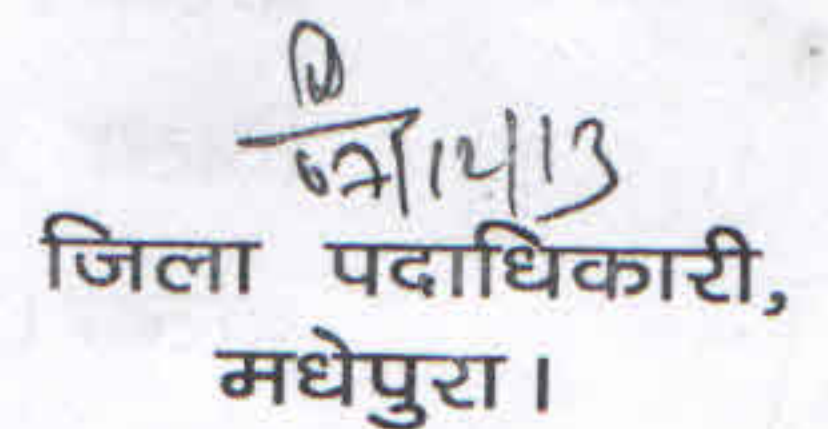 जिला पदाधिकारी,
मधेपुरा।